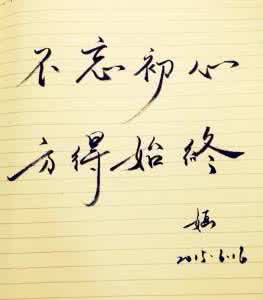 不忘初心
方得始终
2015.6.16